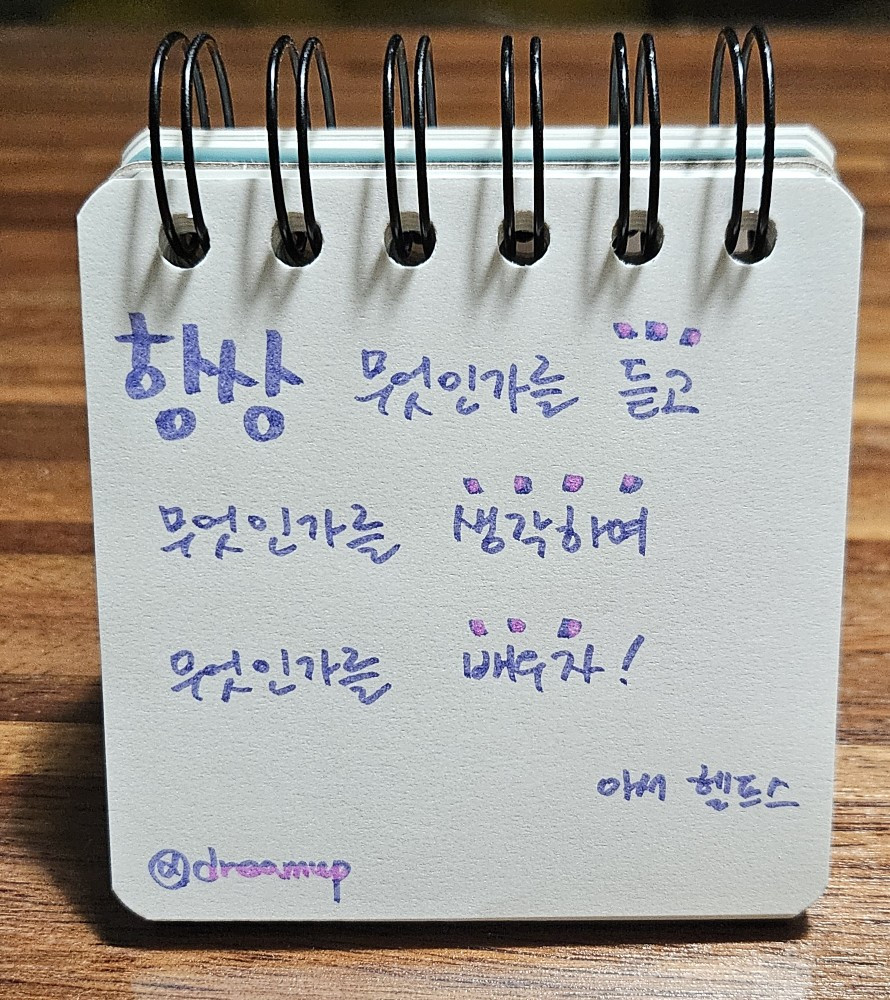 항상 무엇인가를 듣고
무엇인가를 생각하며
무엇인가를 배우자!
아서 헬프스
@dreamup